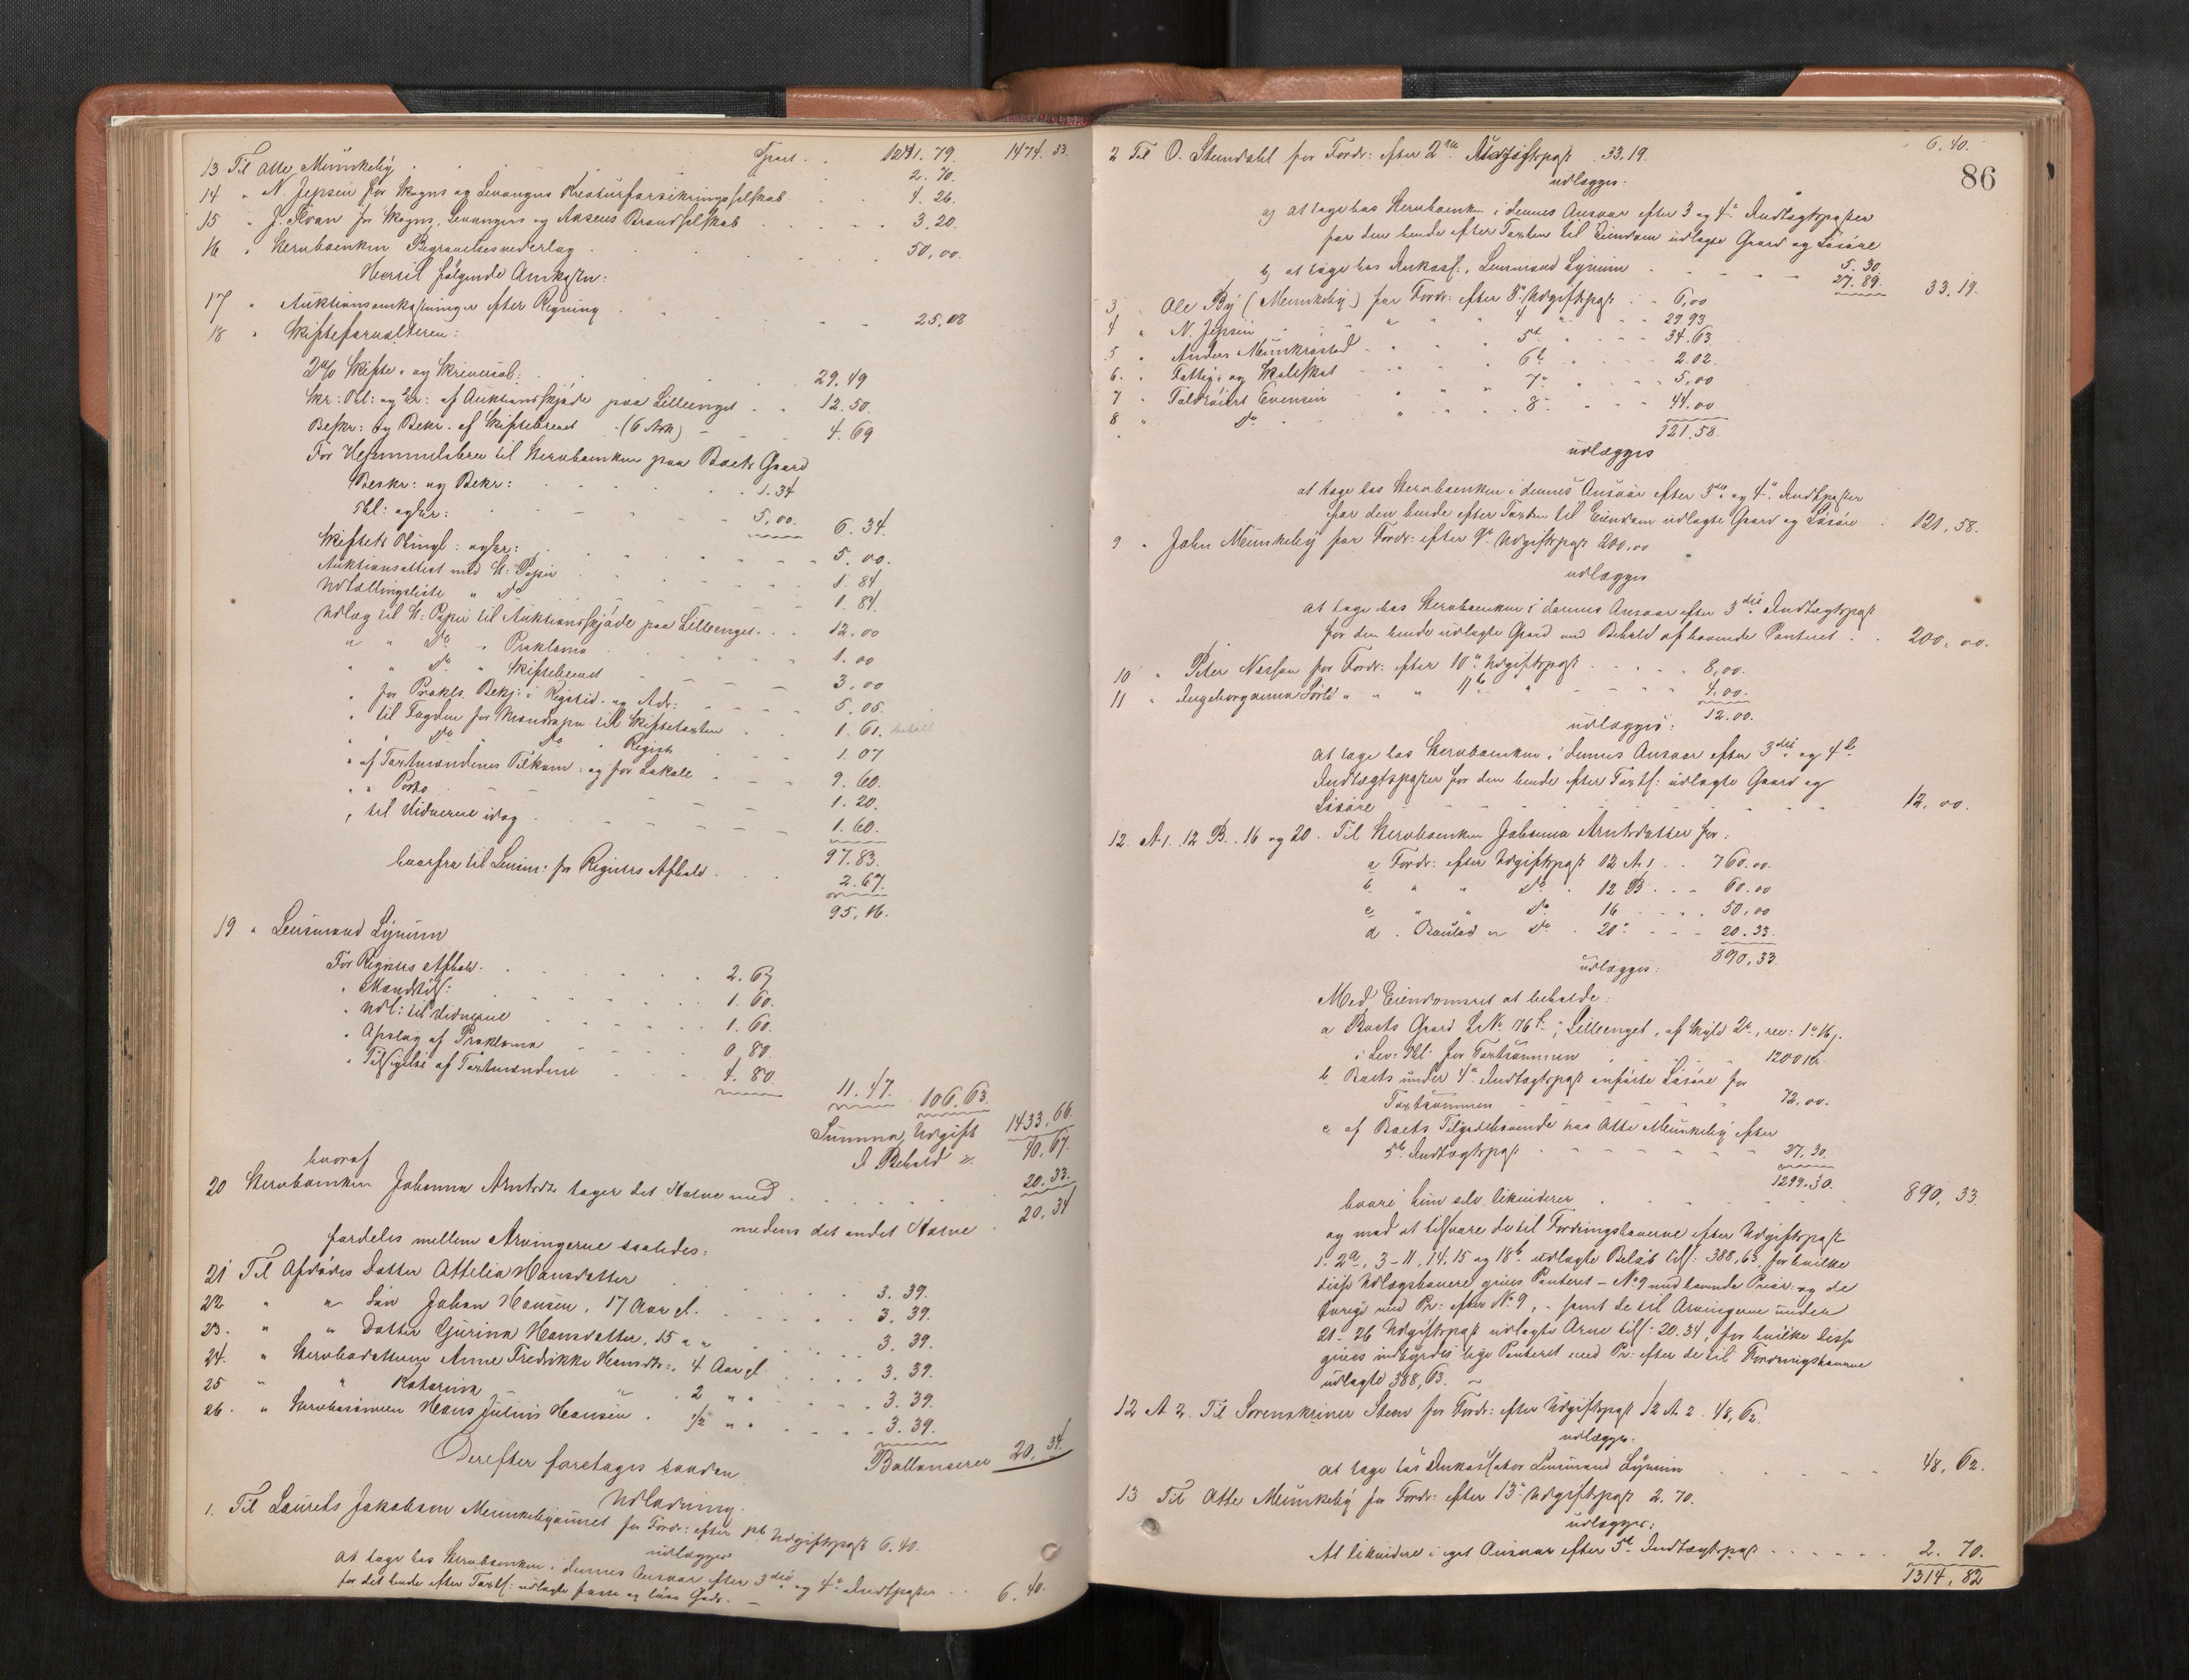 13 Til Atte Munkeby . . . Tpart. . 1241. 79. 1474. 33.
2. 70.
14 " N. Jepsen for Skogns og Levangers Kreaturforsikringsselskab . . 4. 26.
15 " J. Svan for Skogns, Levangers og Aasens Brandselskab . . . . 3. 20.
16 " Stervboenken Begravelsesvederlag . . . 50,00.
Hertil følgende Omkostn:
17 " Auktionsomkostninger efter Regning . . . 25,08
18 " Skifteforvalteren:
2% Skifte- og Skriversal: . . . 29. 49
Skr: Thl: og Gr: af Auktionsskjøde paa Lilleenget . . 12. 50.
Beskr: og Bekr. af Skiftebrevet (6 Ark) - - 4. 69
For Hjemmelsbrev til Stervboenken paa Boets Gaard
Beskr: og Bekr: . . . 1. 34
Thl: og Gr: . . . 5,00. 6. 34.
Skiftets Kingl: og Gr: . . . 5. 00.
Auktionsattest med St: Papir . . . 1. 84
Udtællingsliste " Do . . . 1. 84.
Udlæg til St: Papir til Auktionsskjøde paa Lilleenget . . . 12. 00
" " Do " Proklama . . . 1. 00
" " Do " Skiftebrevet . . . 3. 00
" for Prokls. Bekj: i Rigstid. og Adr: . . . 5. 05.
" til Fogden for Mandsopn. til Skiftetaxten . . 1. 61. betalt
" Do " Do " Registr. . . 1. 07
" af Taxtmændenes Tilkom: og for Lokale . . . 9. 60.
" " Porto . . . 1. 20.
" til Vidnerne idag . . . 1. 60.
97. 83.
hvorfra til Lensm: for Registrs Afhold . . . 2. 67.
95. 16.
19 " Lensmand Lynum
For Registrs Afhold: . . . 2. 67
" Mandtil: . . . 1. 60.
" Udl: til Vidnerne . . . 1. 60.
" Opslag af Proklama . . . 0,80.
" Tilsigelse af Taxtmændene . . . 4. 80
11. 47. 106. 63.
Summa Udgift 1433. 66.
I Behold Kr. 40. 67.
hvoraf
20 Stervboenken Johanna Arntsdtr tager det Halve med . . . 20. 33.
medens det andet Halve . 20. 34
fordeles mellem Arvingerne saaledes:
21 Til Afdødes Datter Attelia Hansdatter . . . 3. 39.
22 " " Søn Johan Hansen, 17 Aar gl. . . . 3. 39.
23. " " Datter Gjurina Hansdatter, 15 " " . . . 3. 39.
24. " Stervbodatteren Anne Fredrikke Hansdtr:, 4 Aar gl . . . 3. 39.
25 " " Katarina " . 2 " " . . . 3. 39.
26. " Stervbosønnen Hans Julius Hansen . ½ " " . . . 3. 39.
Ballancerer 20. 34.
Derefter foretages saadan
Udlodning.
1. Til Laurits Jakobsen Munkebyaunet for Fordr: efter 1ste Udgiftspost 6. 40.
udlægges
at tage hos Stervboenken i dennes Ansvar efter 3die og 4de Indtpster
for det hende efter Taxtf: udlagte faste og løse Gods. — 6. 40.
6. 40.
86
2 Til O. Stendahl for Fordr: efter 2den Udgiftspost . 33.19.
udlægges:
a) at tage hos Stervboenken i dennes Ansvar efter 3 og 4de Indtægtsposter
for den hende efter Taxten til Eiendom udlagte Gaard og Løsøre 5. 30.
b) at tage hos Inkass:, Lensmand Lynum - - - - 27. 89. 33. 19.
3 " Ole By (Munkeby) for Fordr: efter 3de Udgiftspost . . 6,00
4 " N. Jepsen " " " 4 " . . 29.93
5 " Anders Munkrøstad - . . " 5te . . . 34. 63
6. " Fattig- og Skoleskat . . . 6te . . . 2. 02.
7 " Evensen . . " 7de . . . 5,00
8 " Do . . " 8de . . . 44. 00
121. 58.
udlægges
at tage hos Stervboenken i dennes Ansvar efter 3die og 4de Indtpster
for den hende efter Taxten til Eiendom udlagte Gaard og Løsøre . 121, 58.
9 " John Munkeby for Fordr: efter 9de Udgiftspost 200,00
udlægges
at tage hos Stervboenken i dennes Ansvar efter 3die Indtægtspost
for den hende udlagte Gaard med Behold af havende Panteret . . 200. 00.
10 " Peter Nessan for Fordr: efter 10de Udgiftspost . . . 8,00.
11 " Ingeborganna " " " 11te " - - - 4. 00.
12. 00.
udlægges:
at tage hos Stervboenken i dennes Ansvar efter 3die og 4de
Indtægtsposter for den hende efter Taxtf: udlagte Gaard og
Løsøre - - - - 12. 00.
12. A 1. 12 B. 16 og 20. Til Stervboenken Johanna Arntsdatter for:
a Fordr: efter Udgiftspost 12 A 1 . . 760. 00.
b " " Do . 12 B . . . 60. 00
c " " Do . 16 . . . . 50,00
d . Boslod " Do . 20 . - - - 20. 33.
890, 33.
udlægges:
Med Eiendomsret at beholde:
a Boets Gaard L No 76 b, Lilleenget, af Skyld 2 , rev: 1 16 ,
i Lev: Thl: for Taxtsummen . . . 1200 Kr.
b Boets under 4de Indtægtspost anførte Løsøre for
Taxtsummen - - - - 72. 00.
c af Boets Tilgodehavende hos Atte Munkeby efter
5te Indtægtspost - - - - 27. 30.
1299. 30.
hvori hun selv likviderer . . . 890. 33.
og mod at tilsvare de til Fordringshaverne efter Udgiftspost
1. 2a, 3-11, 14, 15 og 18b udlagte Beløb tilf: 388,63, for hvilke
disse Udlægshavere gives Panteret - No 9 med havende Prior: og de
øvrige med Pr: efter No 9, - samt de til Arvingerne under
21-26 Udgiftspost udlagte Arve tilf: 20. 34, for hvilke disse
gives indbyrdes lige Panteret med Pr: efter de til Fordringshaverne
udlagte 388,63. —
12 A 2. Til Sorenskriver Steen for Fordr: efter Udgiftspost 12 A 2 . 48, 62.
udlægges:
at tage hos Inkassator Lensmand Lynum . . . 48, 62.
13 Til Atte Munkeby for Fordr: efter 13de Udgiftspost 2. 70.
udlægges:
At likvidere i eget Ansvar efter 5te Indtægtspost . . . . 2. 70.
1314, 82